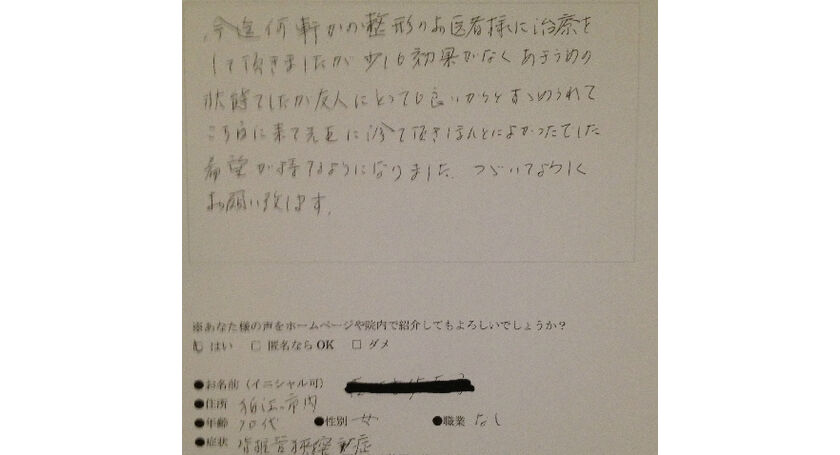 今迄何軒かの整形のお医者様に治療を
して頂きましたが少しも効果がなくあきらめの
状態でしたが友人にとっても良いからとすゝめられて
こちらに来て先生に診て頂きほんとによかったでした
希望が持てるようになりました、つづいてよろしく
お願い致します。
※あなた様の声をホームページや院内で紹介してもよろしいでしょうか？
はい □ 匿名ならOK □ ダメ
●お名前（イニシャル可）
●住所 狛江市内
●年齢 70代 ●性別 女 ●職業 なし
●症状 脊椎管狭窄症